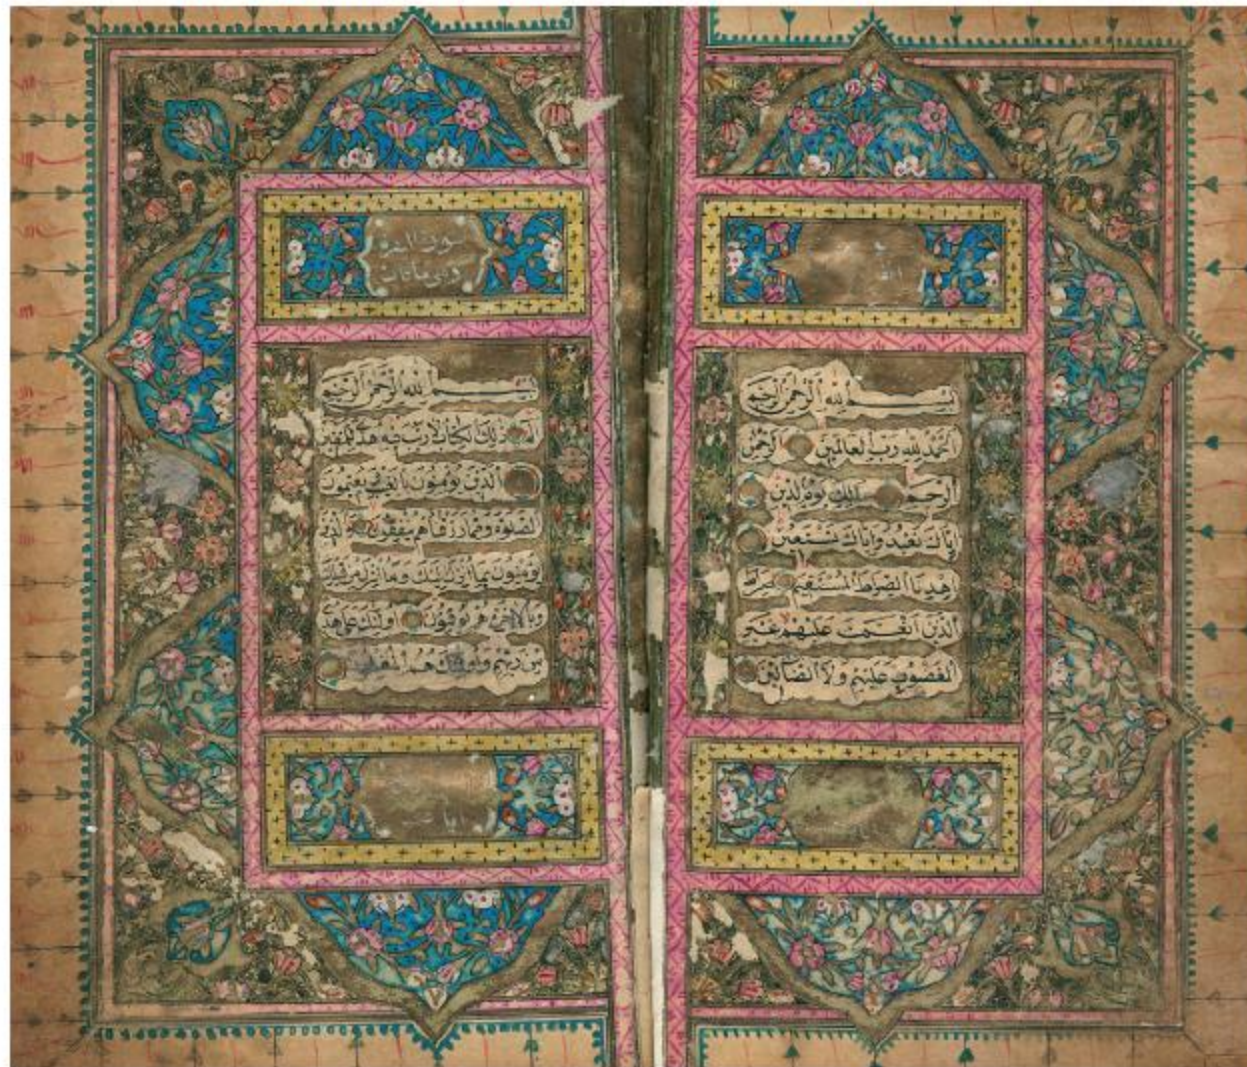 بسم الله الرحمن الرحيم
الحمد لله رب العالمين الرحمن
الرحيم مالك يوم الدين
إياك نعبد وإياك نستعين
اهدنا الصراط المستقيم صراط
الذين أنعمت عليهم غير
المغضوب عليهم ولا الضالين
سورة البقرة
بسم الله الرحمن الرحيم
الم ذلك الكتاب لا ريب فيه هدى للمتقين
الذين يؤمنون بالغيب ويقيمون
الصلوة ومما رزقناهم ينفقون والذين
يؤمنون بما أنزل إليك وما أنزل من قبلك
وبالآخرة هم يوقنون أولئك على هدى
من ربهم وأولئك هم المفلحون